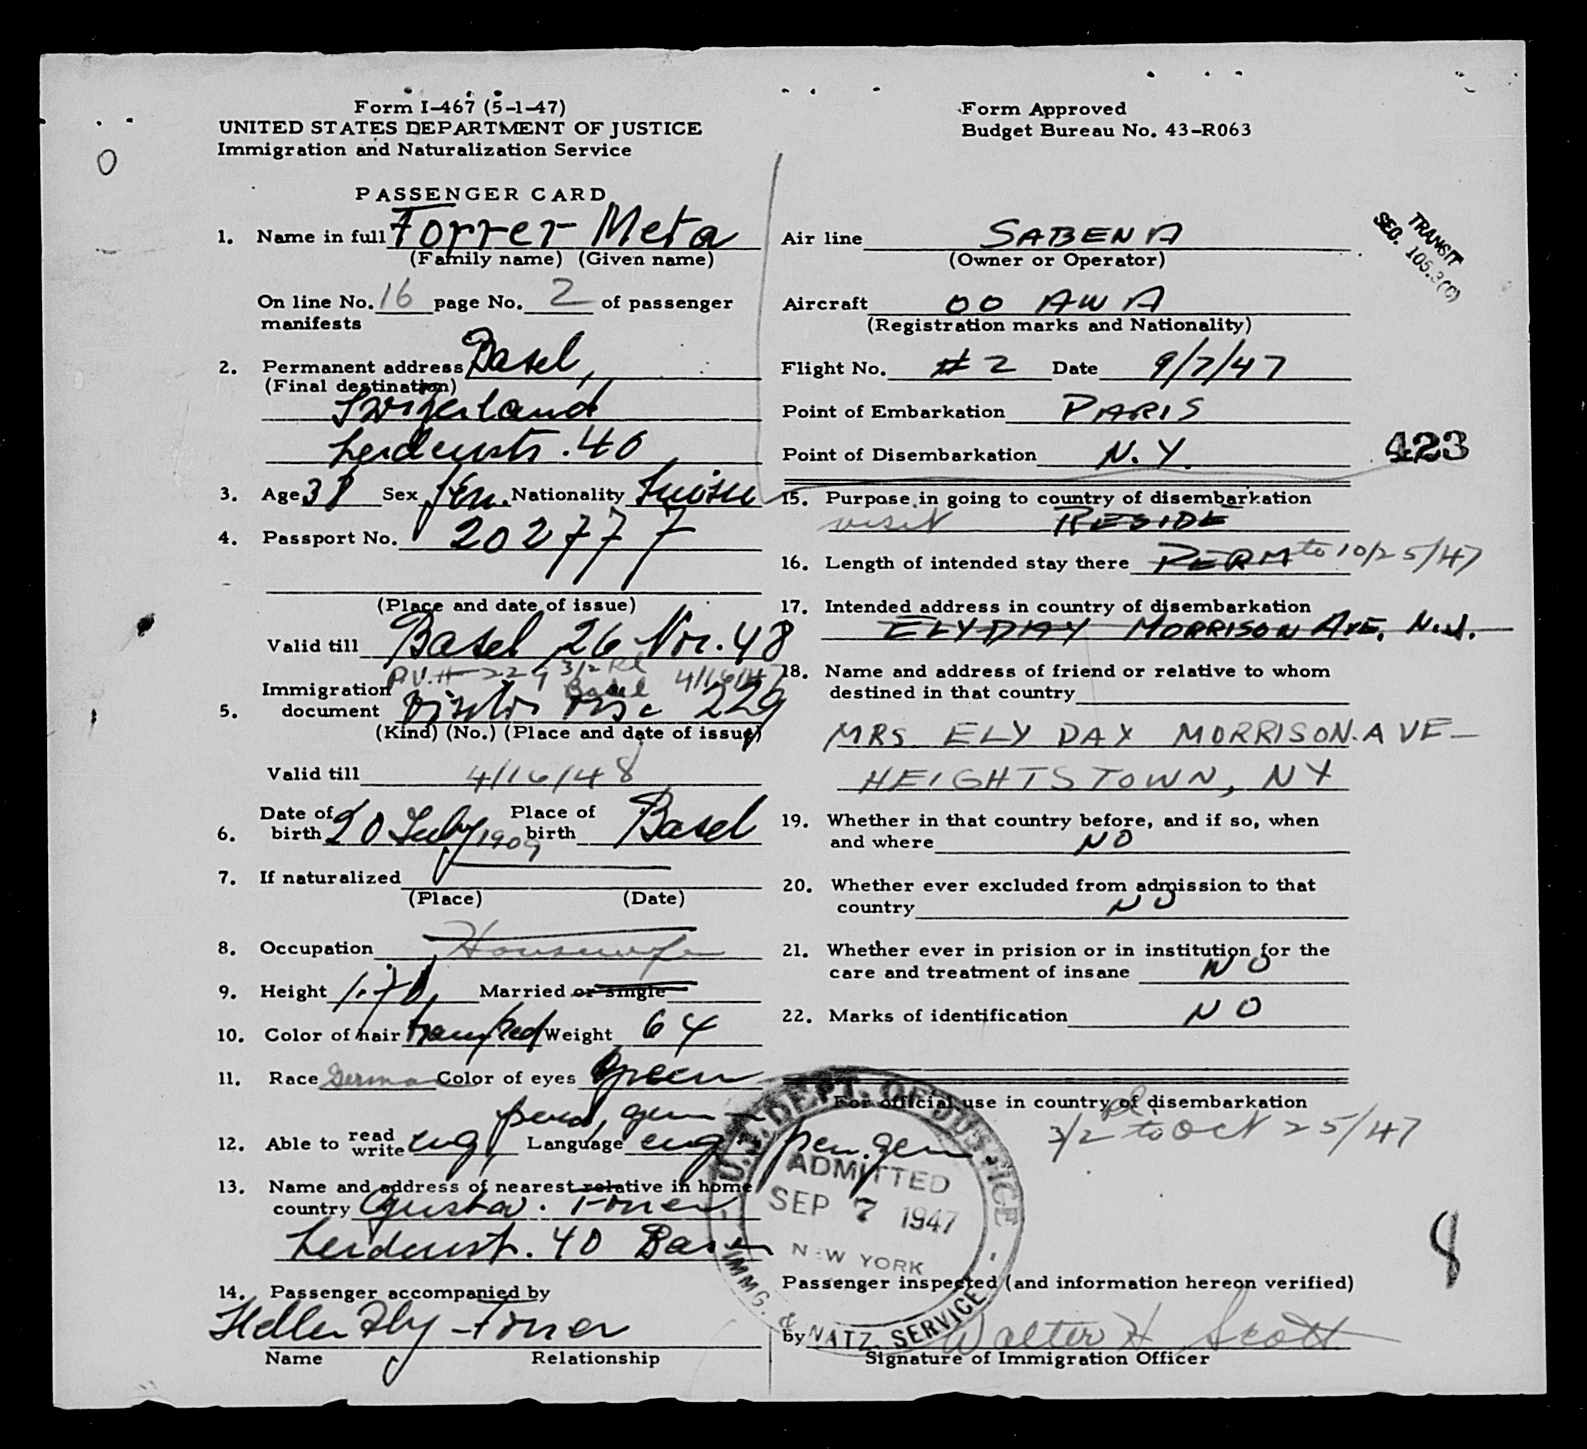 Form I-467 (5-1-47)
UNITED STATES DEPARTMENT OF JUSTICE
Immigration and Naturalization Service
PASSENGER CARD
Form Approved
Budget Bureau No. 43-R063
1. Name in full Forrer Meta
(Family name) (Given name)
On line No. 16 page No. 2 of passenger
manifests
2. Permanent address Basel,
(Final destination)
Switzerland
40
3. Age 38 Sex fem. Nationality
4. Passport No. 202777
(Place and date of issue)
Valid till Basel 26 Nov. 48
P.V. # 229 3/2 Basel 4/16/47
Immigration
5. document visa 229
(Kind) (No.) (Place and date of issue)
Valid till 4/16/48
Date of Place of
6. birth 20 July 1909 birth Basel
7. If naturalized
(Place) (Date)
8. Occupation Housewife
9. Height 1.70 Married or single
10. Color of hair Weight 64
11. Race German Color of eyes green
12. Able to read write eng Language eng
13. Name and address of nearest relative in home
country Gustav. Forrer
40 Bas
14. Passenger accompanied by
Forrer
Name Relationship
Air line SABENA
(Owner or Operator)
Aircraft OO AWA
(Registration marks and Nationality)
TRANSIT
SEC. 105.3(C)
Flight No. #2 Date 9/7/47
Point of Embarkation PARIS
Point of Disembarkation N.Y.
423
15. Purpose in going to country of disembarkation
visit RESIDE
16. Length of intended stay there PERM to 10/25/47
17. Intended address in country of disembarkation
ELY DAY MORRISON AVE. N.J.
18. Name and address of friend or relative to whom
destined in that country
MRS ELY DAY MORRISON. AVE
HEIGHTSTOWN, NY
19. Whether in that country before, and if so, when
and where NO
20. Whether ever excluded from admission to that
country NO
21. Whether ever in prision or in institution for the
care and treatment of insane NO
22. Marks of identification NO
For official use in country of disembarkation
3/2 to Oct 25/47
U.S. DEPT. OF JUSTICE
ADMITTED
SEP 7 1947
NEW YORK
IMMG. & NATZ. SERVICE
8
Passenger inspected (and information hereon verified)
by Walter H Scott
Signature of Immigration Officer